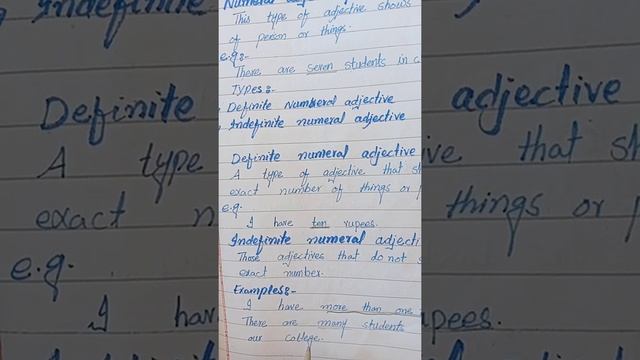 Numeral
This type of adjective shows
of person or things.
e.g:-
There are seven students in
Types:-
Definite Numberal adjective
Indefinite numeral adjective
Definite numeral adjective
A type of adjective that
exact number of things or
e.g.
I have ten rupees.
Indefinite numeral
Those adjectives that do not
exact number.
Examples:-
I have more than one
There are many students
our college.